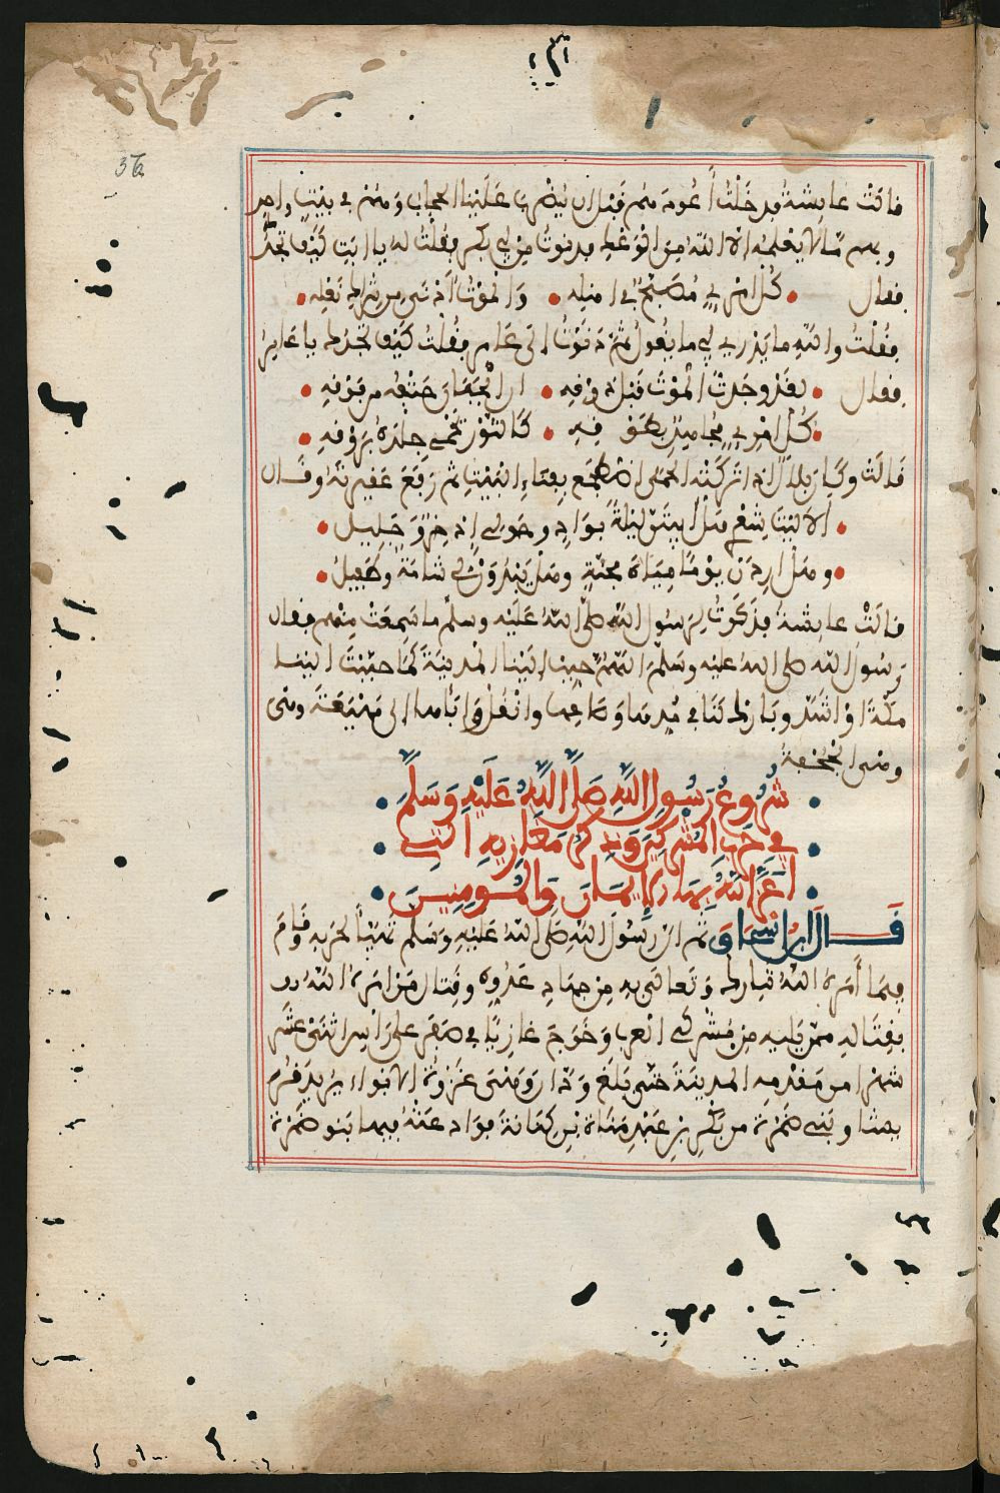 36
قالت عايشة فدخلت أعودهم قبل ان يضرب علينا الحجاب وهم في بيت واحد
وبهم ما لا يعلمه الا الله من الوعك فدنوت من ابي بكر فقلت له يا ابت كيف تجدك
فقال كل امرئ مصبح في اهله والموت أدنى من شراك نعله
فقلت والله ما يدري ابي ما يقول ثم دنوت الى عامر فقلت كيف تجدك يا عامر
فقال لقد وجدت الموت قبل ذوقه ان الجبان حتفه من فوقه
كل امرئ مجاهد بطوقه كالثور يحمي جلده بروقه
قالت وكان بلال اذا تركته الحمى اضطجع بفناء البيت ثم رفع عقيرته وقال
الا ليت شعري هل ابيتن ليلة بواد وحولي إذخر وجليل
وهل اردن يوما مياه مجنة وهل يبدون لي شامة وطفيل
قالت عايشة فذكرت لرسول الله صلى الله عليه وسلم ما سمعت منهم فقال
رسول الله صلى الله عليه وسلم اللهم حبب الينا المدينة كما حببت الينا
مكة او اشد وبارك لنا في مدها وصاعها وانقل وباءها الى مهيعة وهي
وهي الجحفة
شروع رسول الله صلى الله عليه وسلم
في حرب المشركين وذكر مغازيه التي
اعز الله بها الإيمان والمومنين
قال ابن اسحاق ثم ان رسول الله صلى الله عليه وسلم تهيأ لحربه وقام
فيما أمره الله تبارك وتعالى به من جهاد عدوه وقتال من امره الله
بقتاله ممن يليه من مشركي العرب وخرج غازيا في صفر على رأس اثنى عشر
شهرا من مقدمه المدينة حتى بلغ ودان وهي غزوة الابواء يريد قريشا
وبني ضمرة من بكر بن عبد مناة بن كنانة فوادعته فيها بنو ضمرة